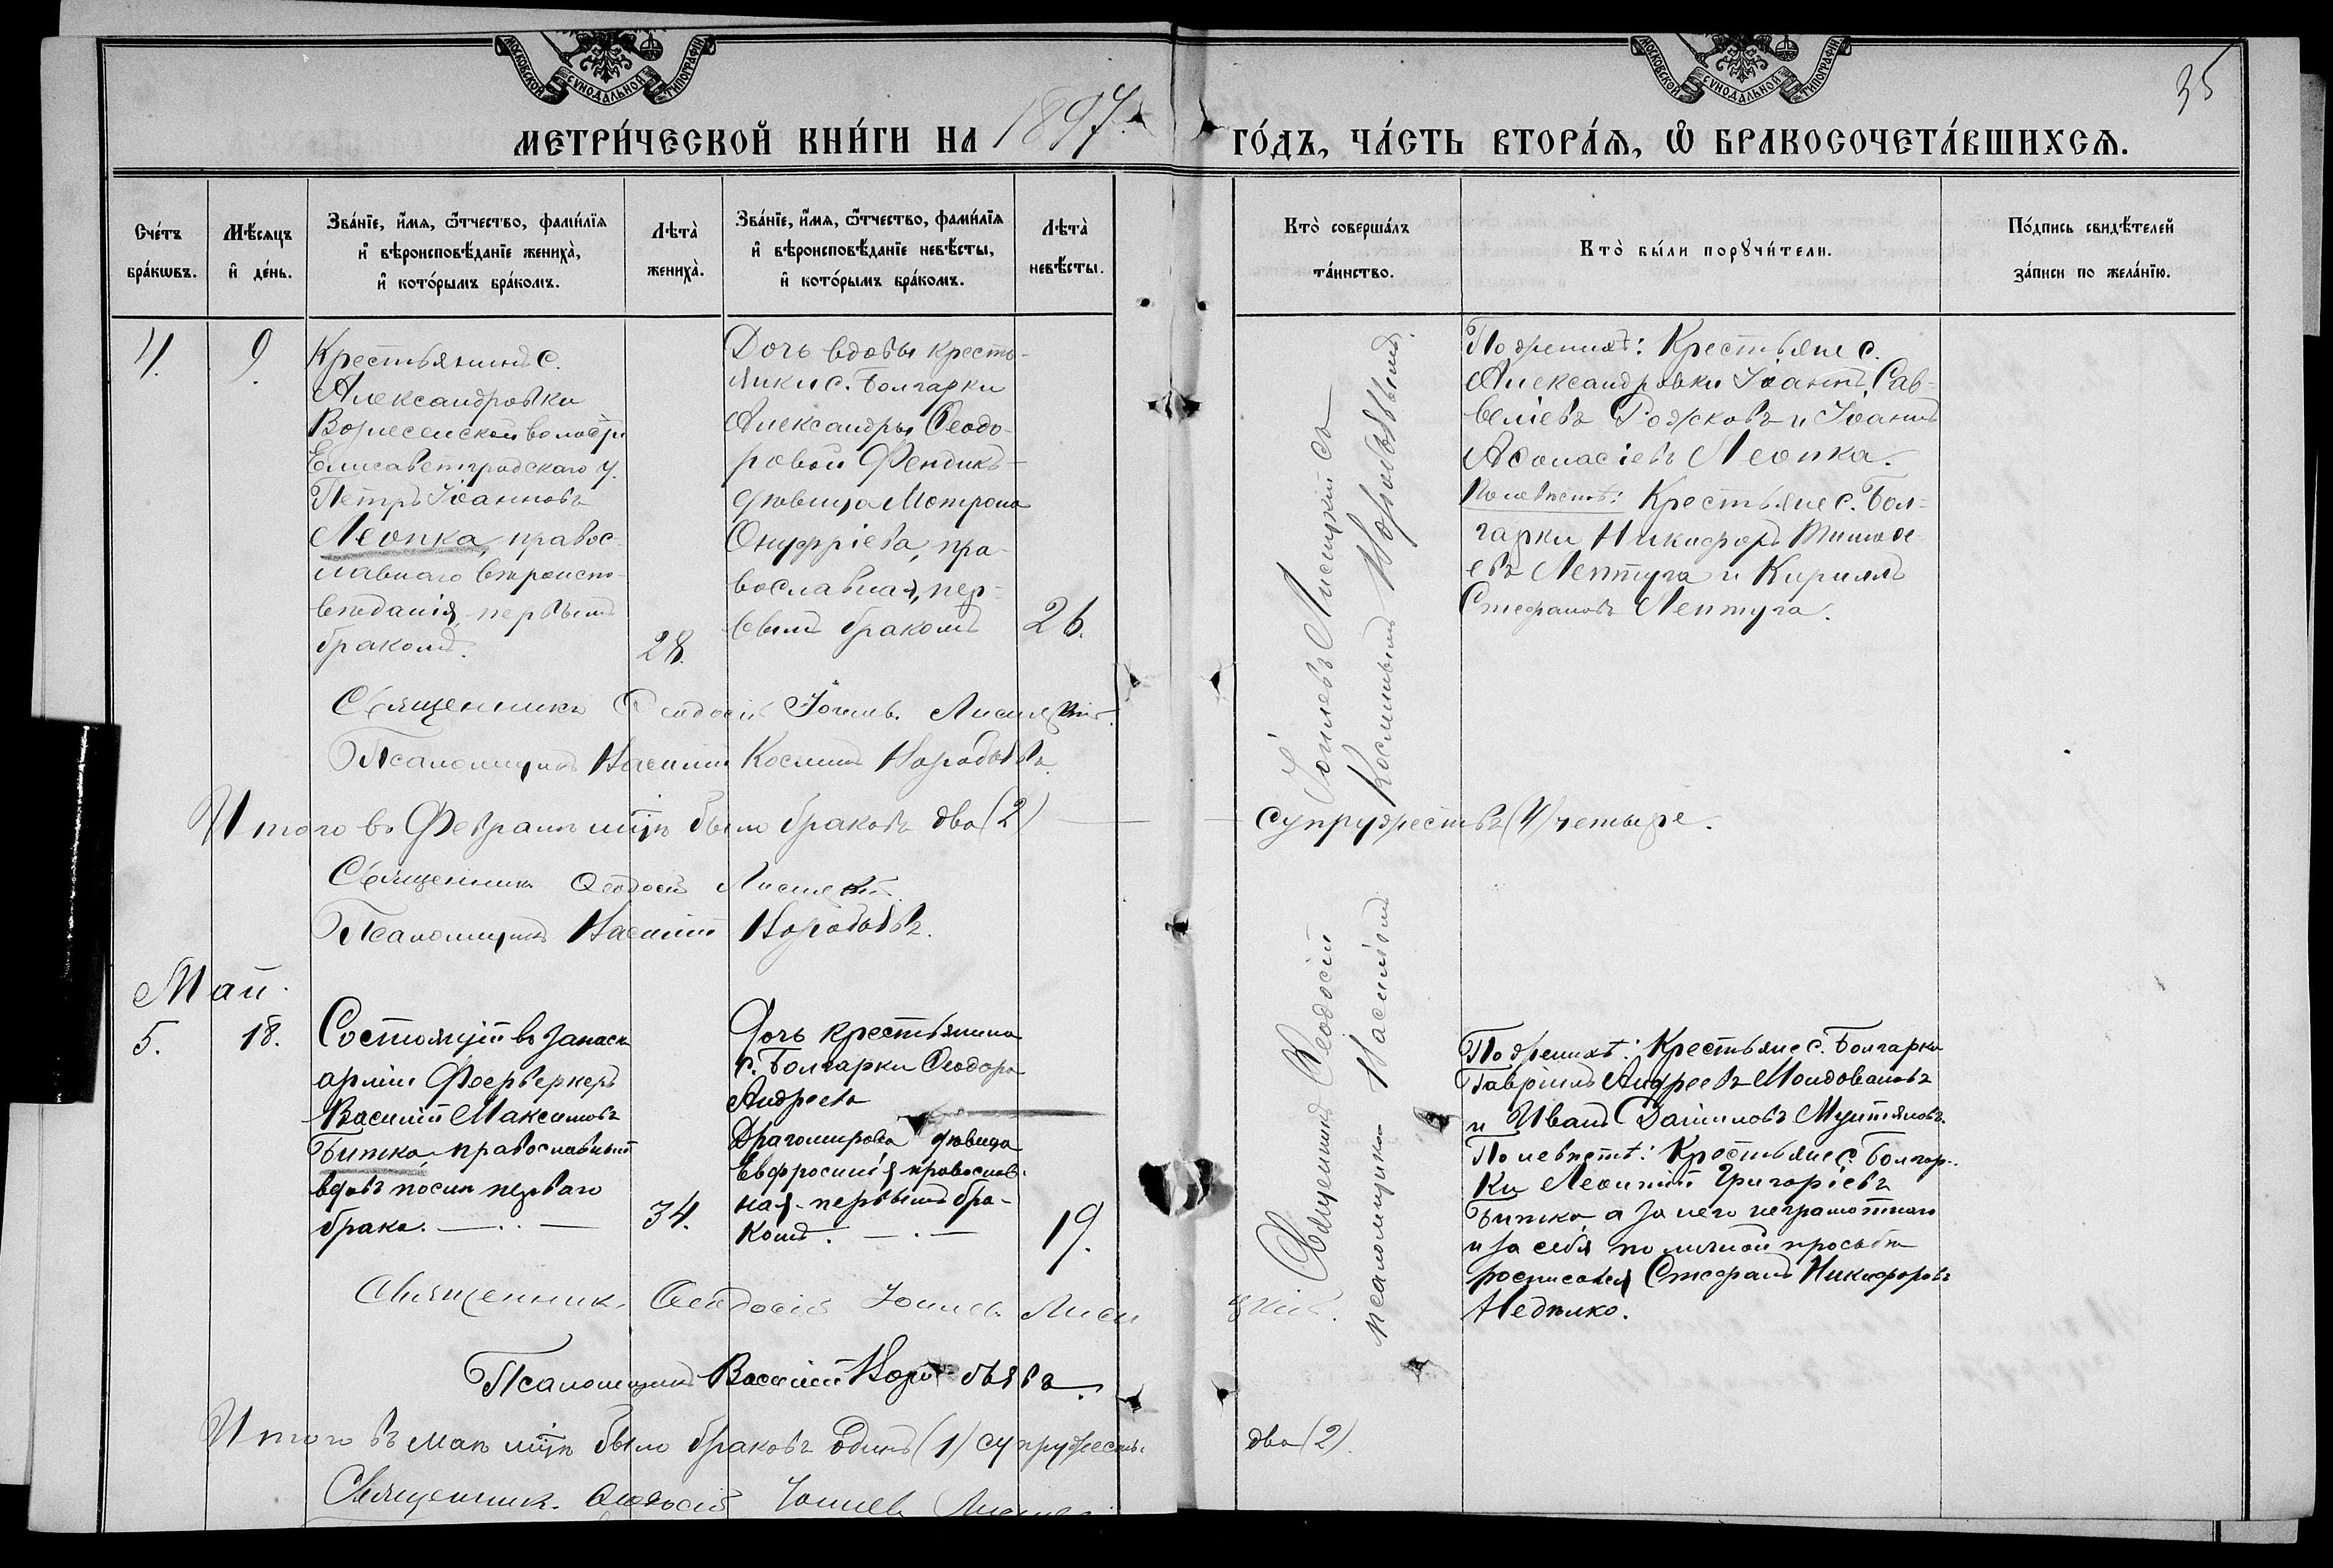 МОСКОВСКОЙ СѴНОДАЛЬНОЙ ТИПОГРАФІИ
МОСКОВСКОЙ СѴНОДАЛЬНОЙ ТИПОГРАФІИ
35
МЕТРИ́ЧЕСКОЙ КНИ́ГИ НА 1897 ГО́ДЪ, ЧА́СТЬ ВТОРА́Ѧ, Ѽ БРАКОСОЧЕТА́ВШИХСѦ.
Сче́тъ
бра́кѡвъ.
Мѣ́сѧцъ
и де́нь.
Зва́нїе, и́мѧ, ѻ́тчество, фами́лїѧ
и вѣроисповѣ́данїе жениха̀,
и кото́рымъ бра́комъ.
Лѣта̀
жениха̀.
Зва́нїе, и́мѧ, ѻ́тчество, фами́лїѧ
и вѣроисповѣ́данїе невѣ́сты,
и кото́рымъ бра́комъ.
Лѣта̀
невѣ́сты.
Кто̀ соверша́лъ
та́инство.
Кто̀ бы́ли порꙋчи́тели.
По́дпись свидѣ́телей
за́писи по жела́нїю.
4.
9.
Крестьянинъ с.
Александровки
Вознесенской волости
Елисаветградскаго у.
Петръ Іоанновъ
Леопка, правос-
лавнаго вѣроиспо-
вѣданія, первымъ
бракомъ.
28.
Дочь вдовы кресть-
янки с. Болгарки
Александры Ѳеодо-
ровой Фендикъ-
дѣвица Мотрона
Онуфріева, пра-
вославная, пер-
вымъ бракомъ
26.
Священникъ Ѳеодосій Іоилевъ Лисицкій съ
псаломщикомъ Василіемъ Косминымъ Воробьевымъ.
По женихѣ: Крестьяне с.
Александровки Іоаннъ Сав-
веліевъ Рожковъ и Іоаннъ
Аѳонасіевъ Леопка.
По невѣстѣ: Крестьяне с. Бол-
гарки Никифоръ Тимоѳе-
евъ Лептуга и Кириллъ
Стефановъ Лептуга.
Священникъ Ѳеодосій Іоилевъ Лисицкій.
Псаломщикъ Василій Косминъ Воробьевъ.
Итого въ Февралѣ мцѣ было браковъ два (2) супружествъ (4) четыре.
Священникъ Ѳеодосій Лисицкій.
Псаломщикъ Василій Воробьевъ.
Май.
5.
18.
Состоящій въ запасѣ
арміи Фоерверкеръ
Василій Максимовъ
Битко, православный
вдовъ послѣ перваго
брака.
34.
Дочь крестьянина
с. Болгарки Ѳеодора
Андреева
Драгомирова дѣвица
Евфросинія православ-
ная - первымъ бра-
комъ.
19.
По женихѣ: Крестьяне с. Болгарки
Гавріилъ Андреевъ Молдовановъ
и Иванъ Даниловъ Мунтяновъ.
По невѣстѣ: Крестьяне с. Болгар-
ки Леонтій Григоріевъ
Битко, а за него неграмотнаго
и за себя по личной просьбѣ
росписался Стефанъ Никифоровъ
Недѣлко.
Священникъ Ѳеодосій Іоилев. Лисицкій.
Псаломщикъ Василій Воробьевъ.
Итого въ маѣ мцѣ было браковъ одинъ (1) супружествъ два (2).
Священникъ Ѳеодосій Іоилевъ